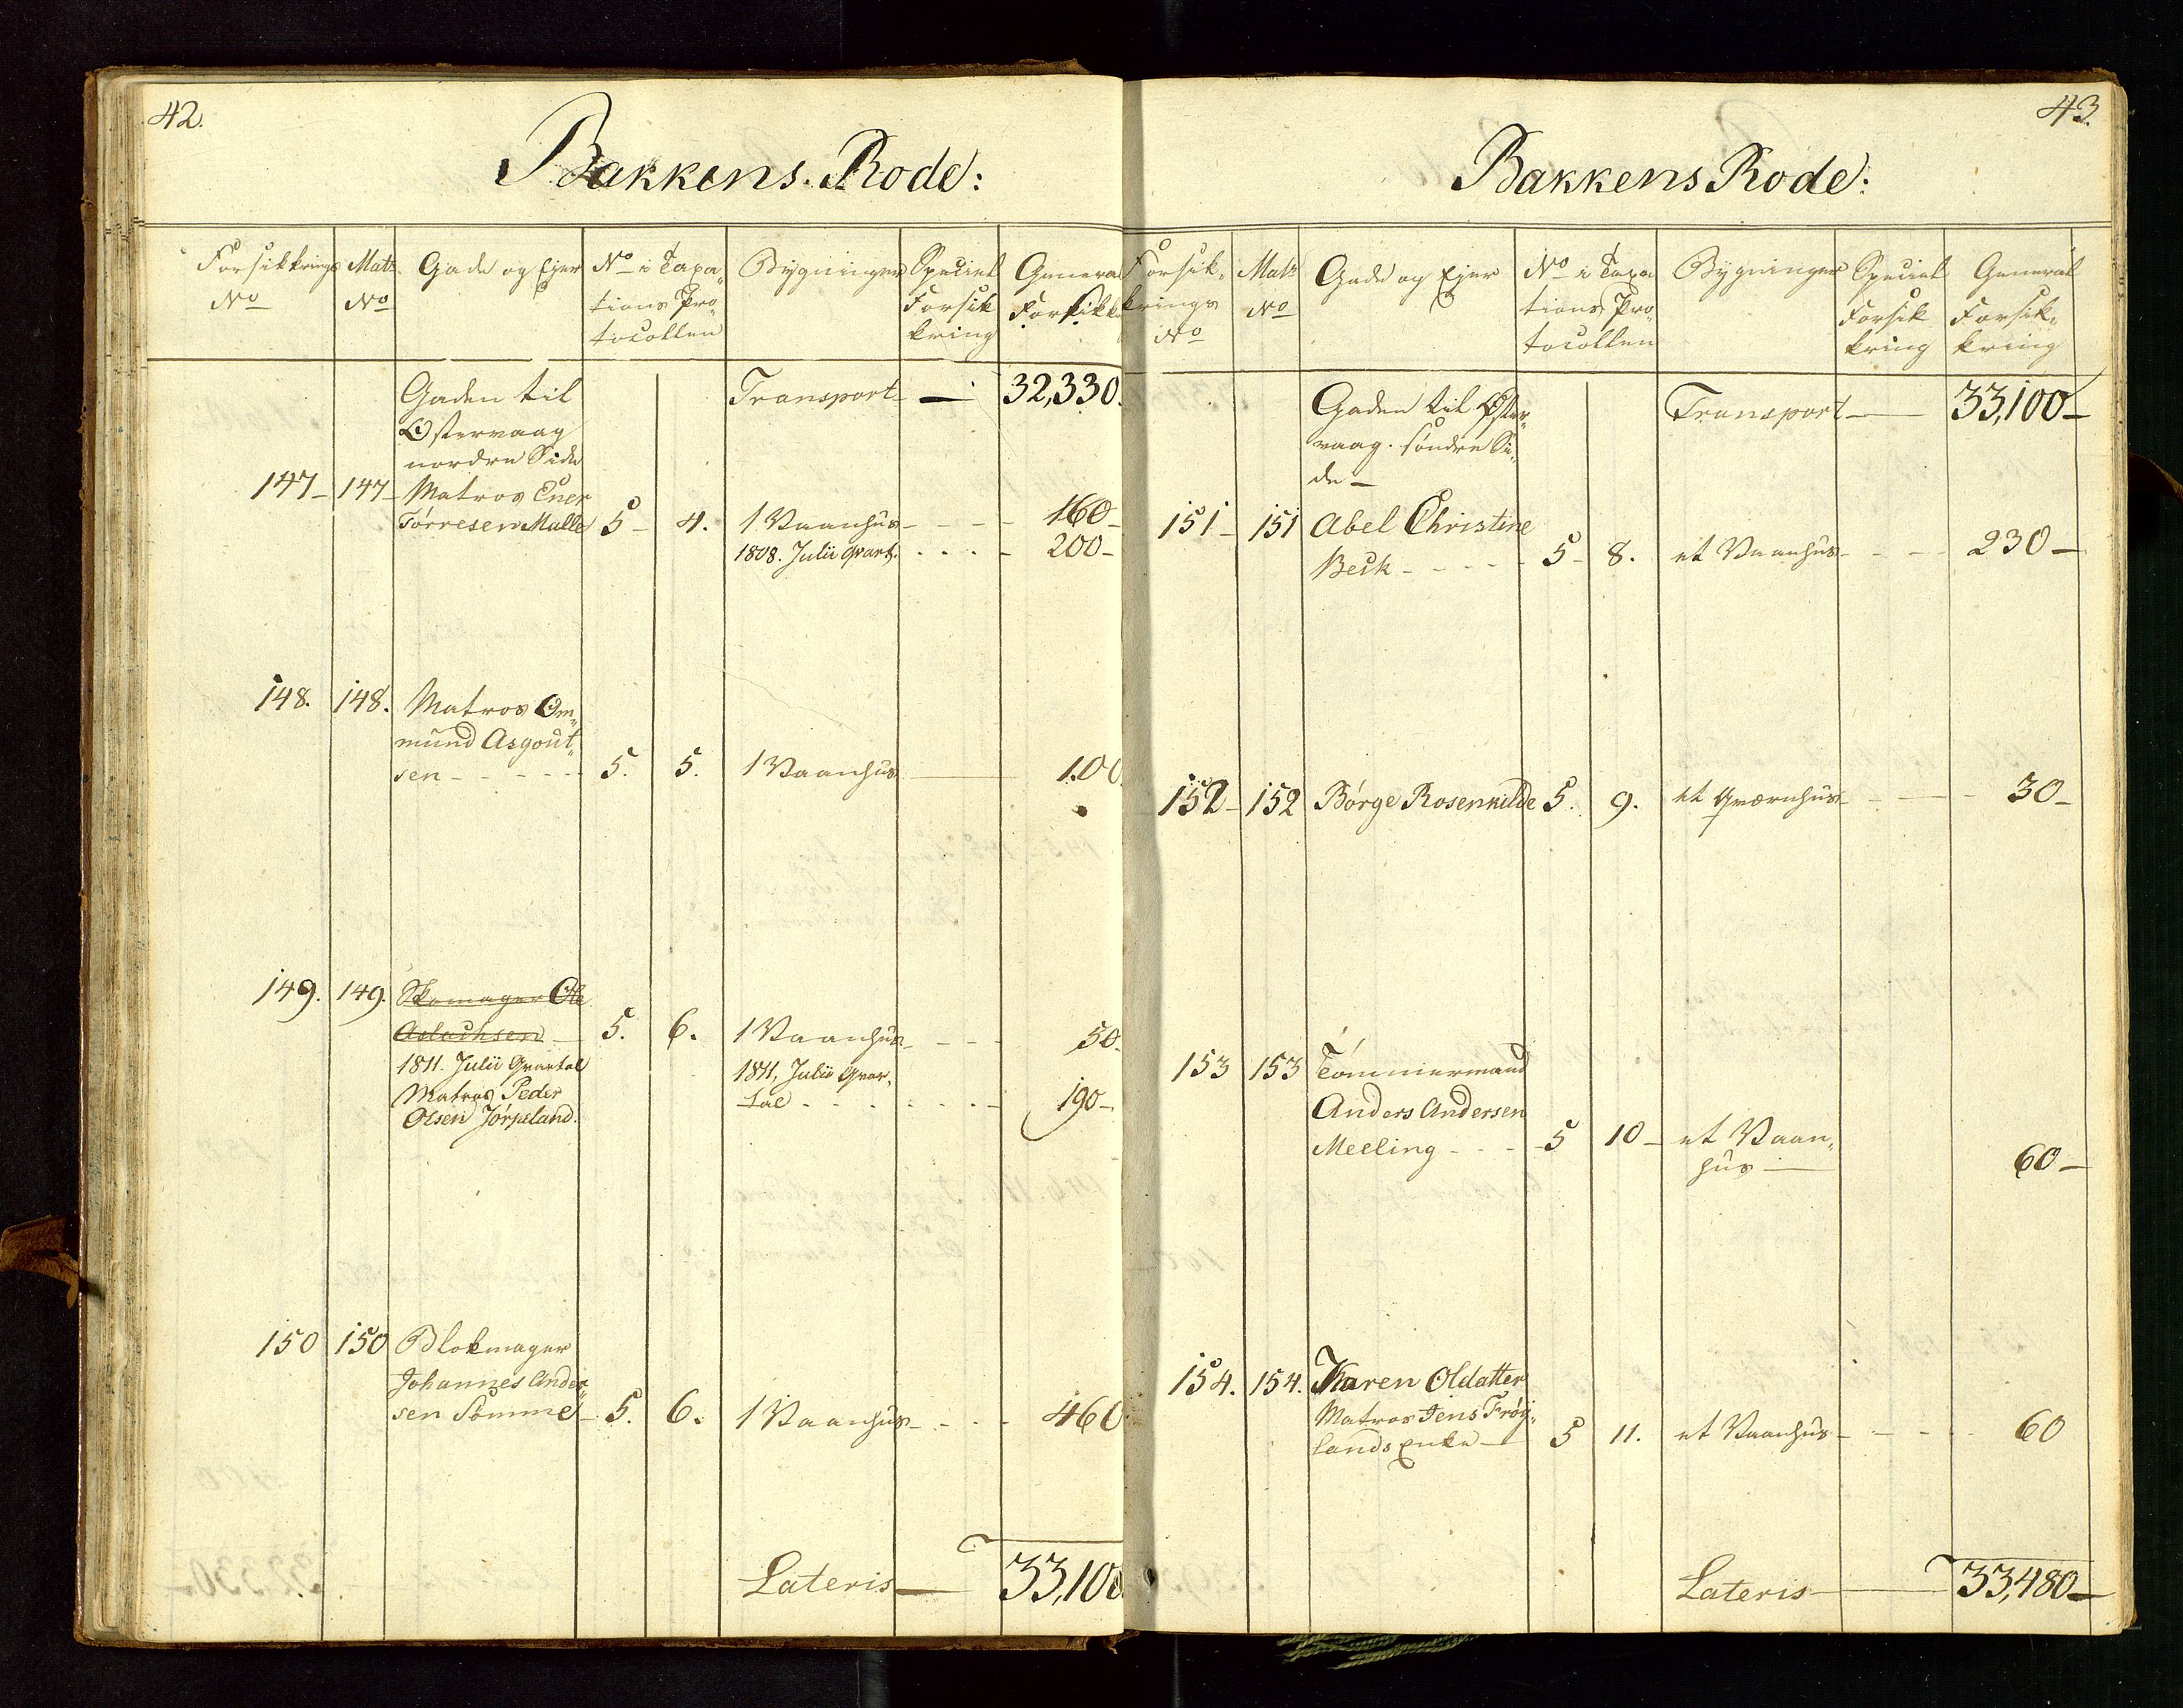 42.
Bakkens Rode:
Forsikkrings No
Matr. No
Gade og Ejer
No i Taxa„
tions Pro„
tocollen
Bygninger
Speciel
Forsik
kring
General
Forsikk
Gaden til
Østervaag
nordre Side
Transport — 32,330.
147 – 147 – Matros Ener
Törresen Malle 5 – 4. 1 Vaanhus – – – 160 –
1808. Julii Qvart. . . . – 200 –
148. 148. Matros Om„
mund Asgout„
sen – – – – – 5. 5. 1 Vaanhus — 100
149. 149. Skomager Ole
Aslachsen – 5. 6. 1 Vaanhus – – – 50 –
1811. Julii Qvartal
Matros Peder
Olsen Jörpeland.
1811. Julii Qvar„
tal . . . . . . – 190 –
150 150 Blokmager
Johannes Ander„
sen Sömme – 5. 6. 1 Vaanhus – – – 460
Lateris — 33,100
43.
Bakkens Rode:
Forsik„
krings
No
Matr
No
Gade og Ejer
No i Taxa
tions Pro„
tocollen
Bygninger
Speciel
Forsik
kring
General
Forsik„
kring
Gaden til Øster„
vaag. söndre Si„
de –
Transport — 33,100 –
151 – 151 Abel Christine
Beck – – – – – 5 – 8. et Vaanhus – – – 230 –
152 – 152 Börge Rosenkilde 5. 9. et Qværnhus – – – 30 –
153 153 Tömmermand
Anders Andersen
Meeling – – – 5 10 – et Vaan„
hus — 60 –
154. 154. Karen Oldatter
Matros Jens Fröy„
lands Enke – 5 11. et Vaanhus – – – 60
Lateris — 33,480 –